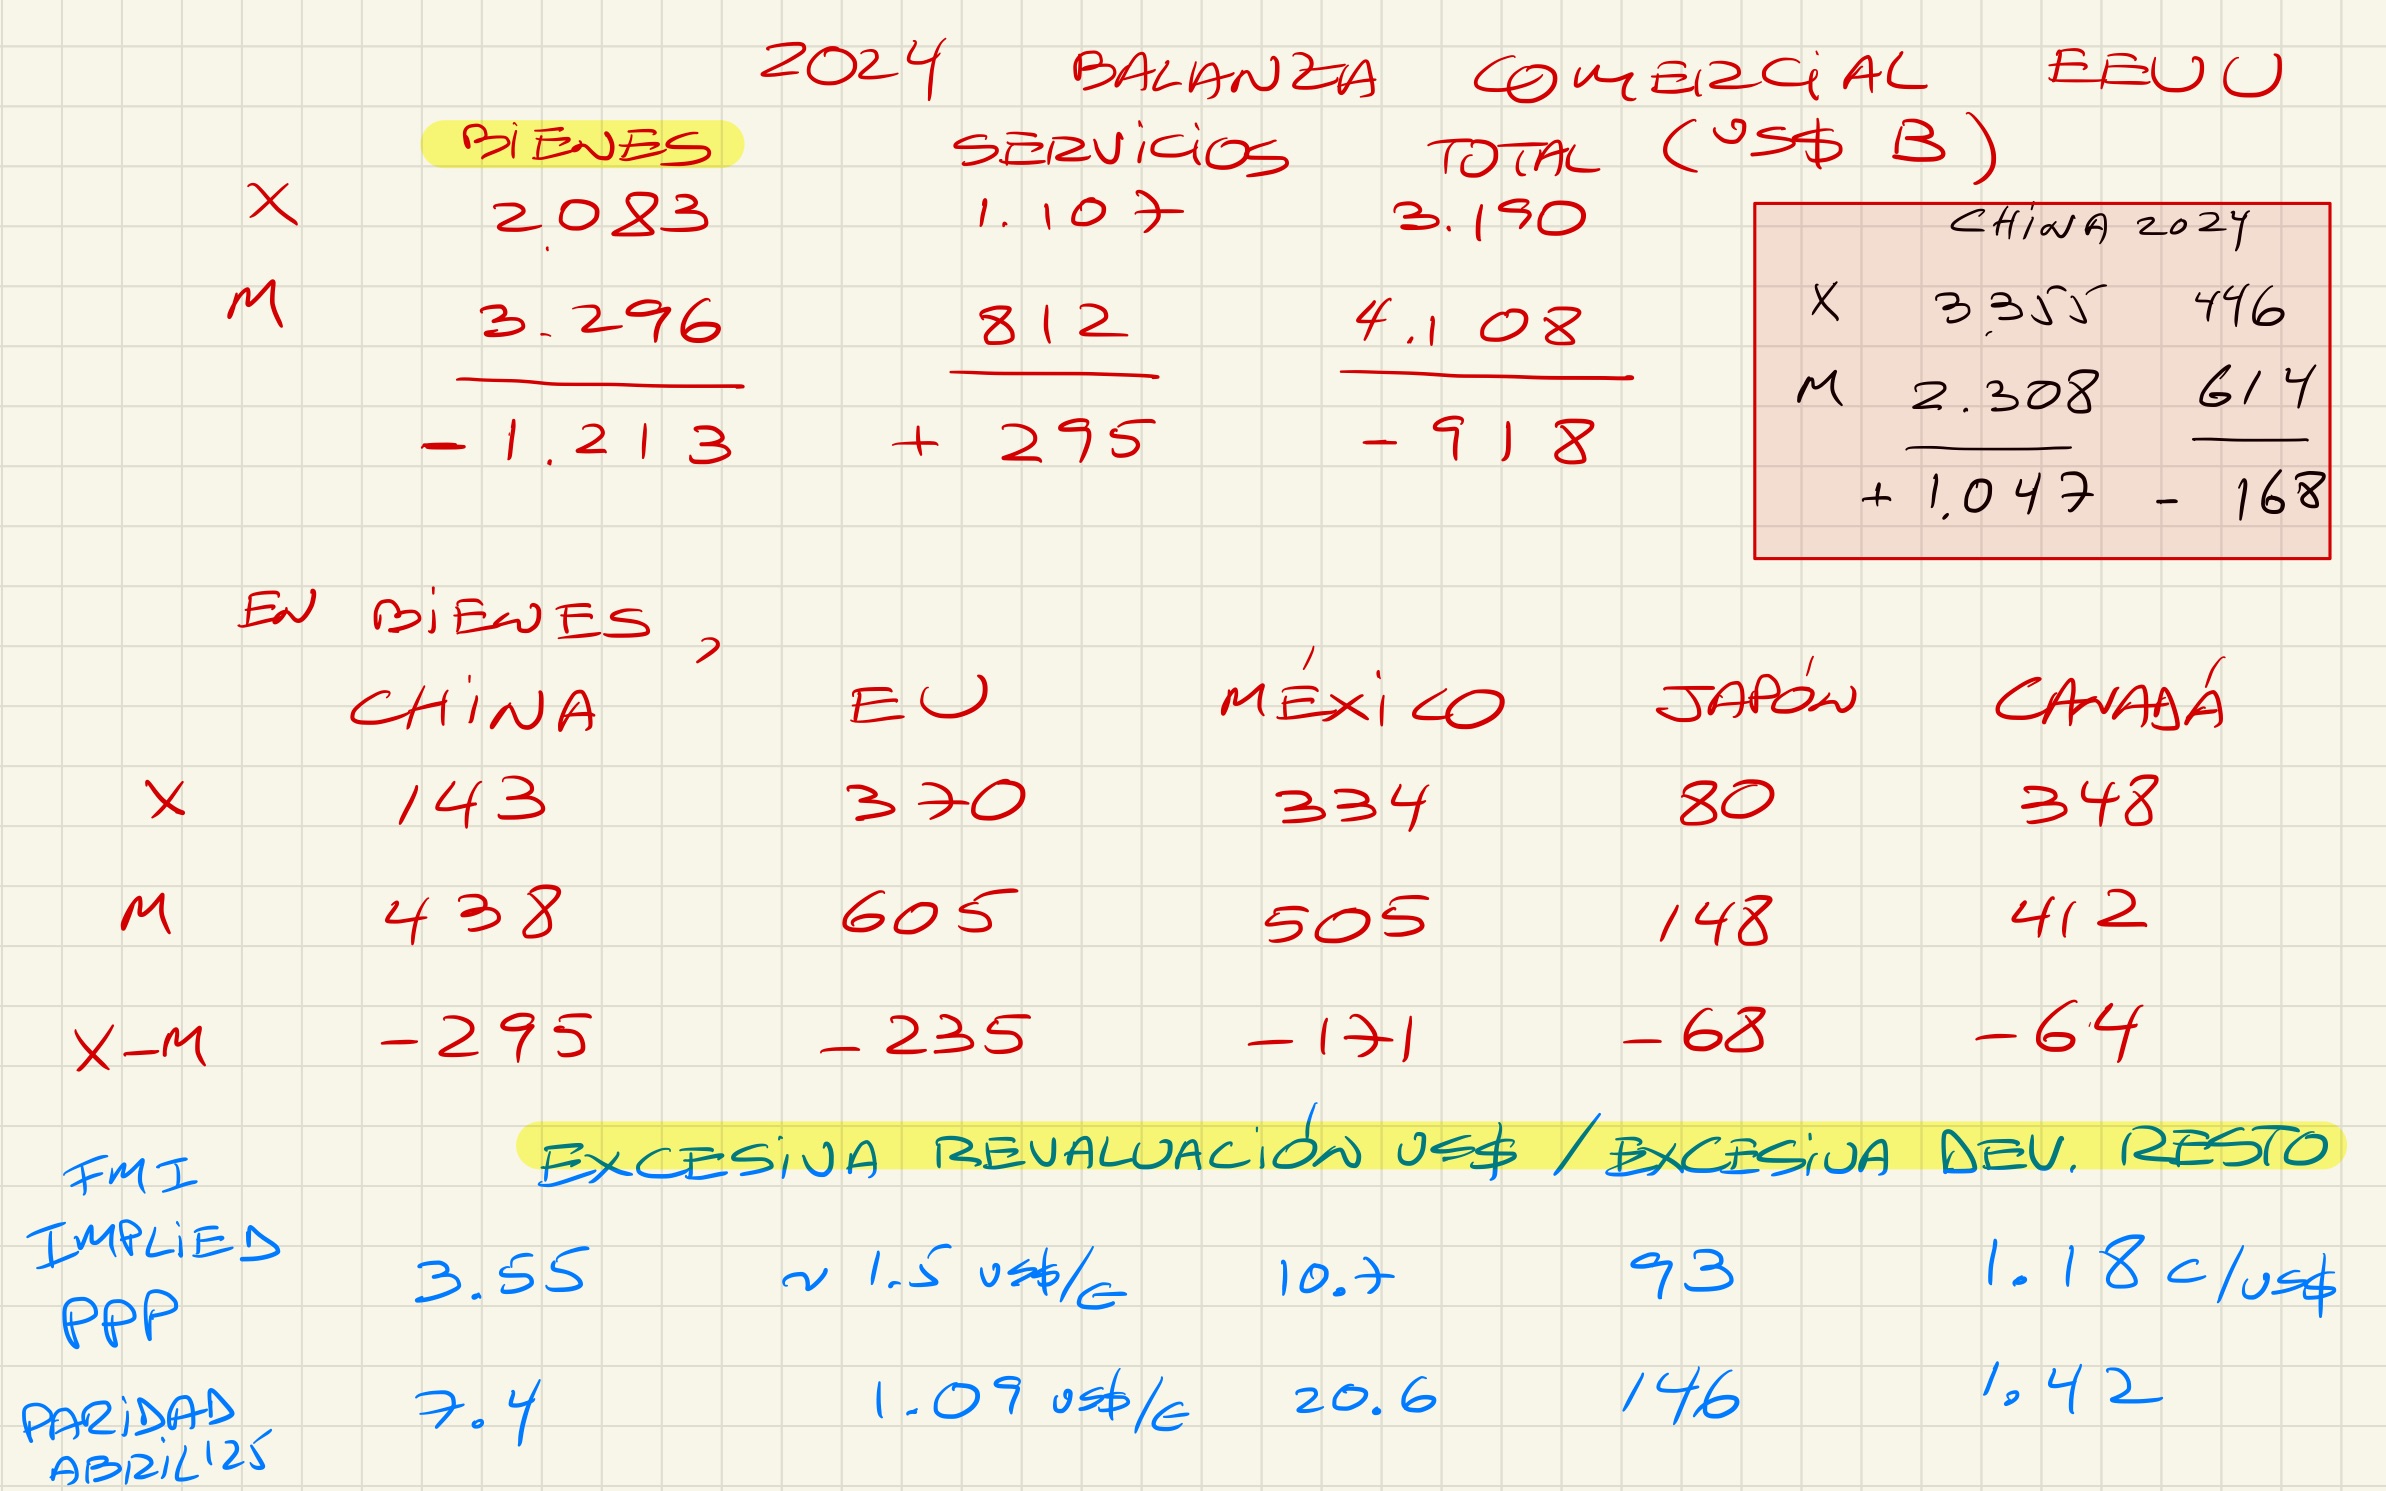 2024 BALANZA COMERCIAL EEUU
BIENES SERVICIOS TOTAL (US$ B)
X 2.083 1.107 3.190
M 3.296 812 4.108
-1.213 + 295 -918
CHINA 2024
X 3.355 446
M 2.308 614
+ 1.047 - 168
EN BIENES,
CHINA EU MÉXICO JAPÓN CANADÁ
X 143 370 334 80 348
M 438 605 505 148 412
X-M -295 -235 -171 -68 -64
EXCESIVA REVALUACIÓN US$ / EXCESIVA DEV. RESTO
FMI
IMPLIED
PPP
3.55 ~ 1.5 US$/€ 10.7 93 1.18 C/US$
PARIDAD
ABRIL'25
7.4 1.09 US$/€ 20.6 146 1.42